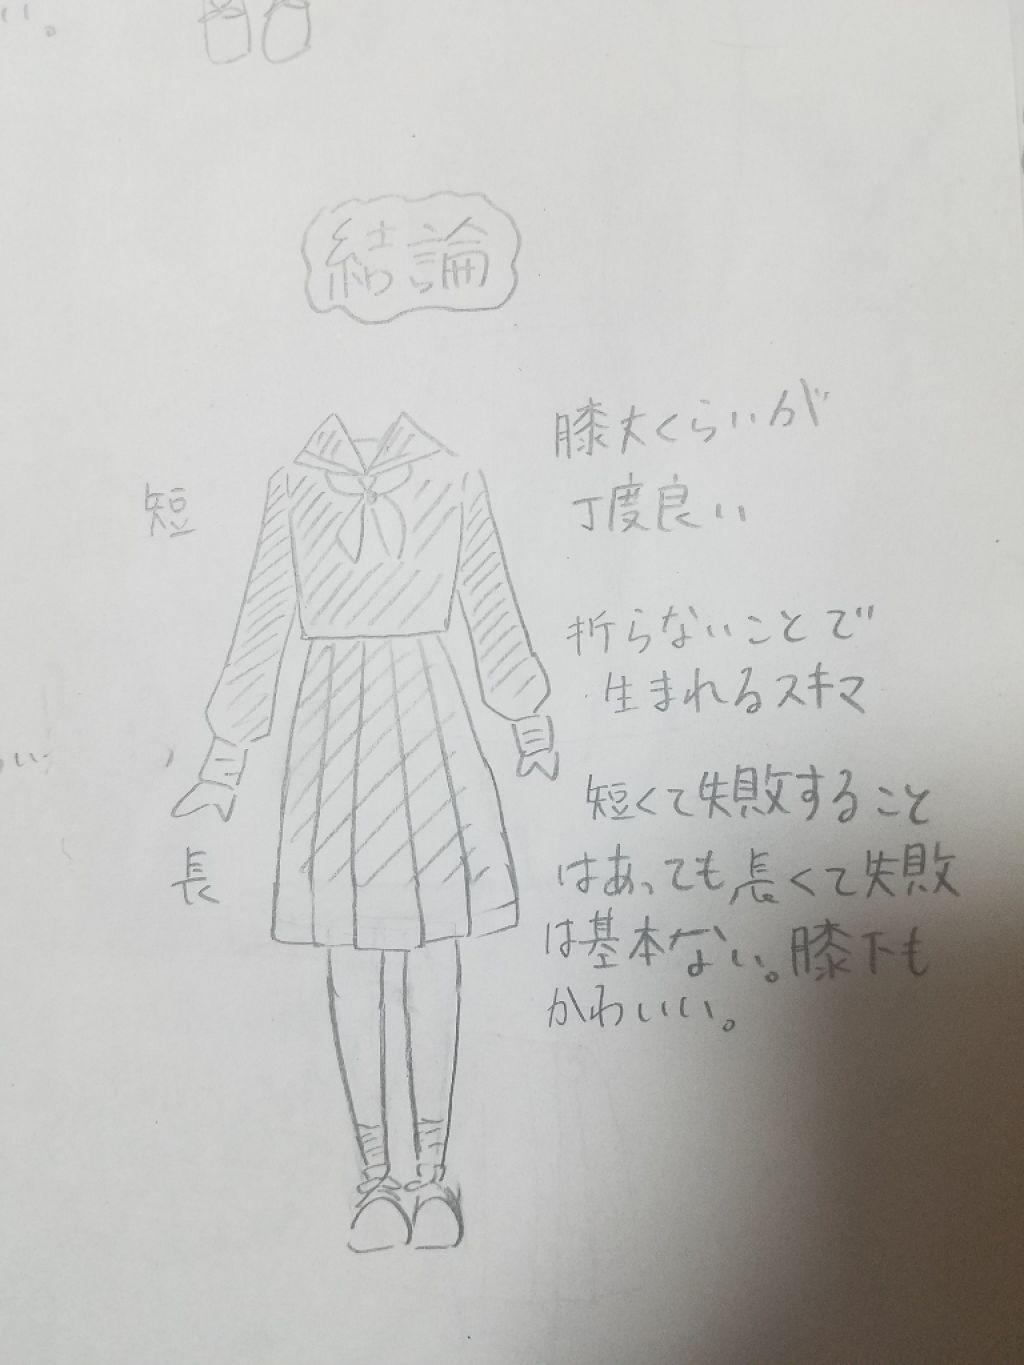 い。
結論
短
長
膝丈くらいが
丁度良い
折らないことで
生まれるスキマ
短くて失敗すること
はあっても長くて失敗
は基本ない。膝下も
かわいい。